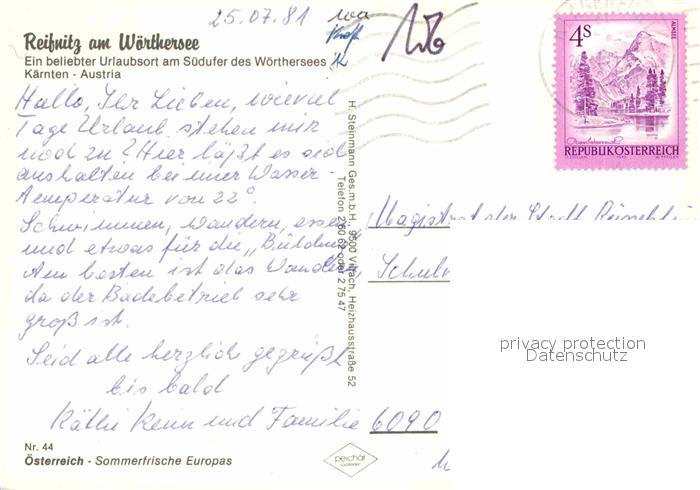 25.07.81
Reifnitz am Wörthersee
Ein beliebter Urlaubsort am Südufer des Wörthersees
Kärnten - Austria
Hallo, Ihr Lieben, wieviel
Tage Urlaub stehen mir
noch zu? Hier läßt es sich
aushalten bei einer Wasser-
temperatur von 22°.
Schwimmen, Wandern, essen
und etwas für die „Bildung“
Am besten ist das Wandern,
da der Badebetrieb sehr
groß ist.
Seid alle herzlich gegrüßt
bis bald
Käthi Kenn und Familie
Nr. 44
Österreich - Sommerfrische Europas
H. Steinmann Ges.m.b.H., 9500 Villach, Heizhausstraße 52
Telefon 2 60 62 oder 2 75 47
perchar
4S
ALMSEE
REPUBLIK ÖSTERREICH
Magistrat der Stadt
6090
privacy protection
Datenschutz